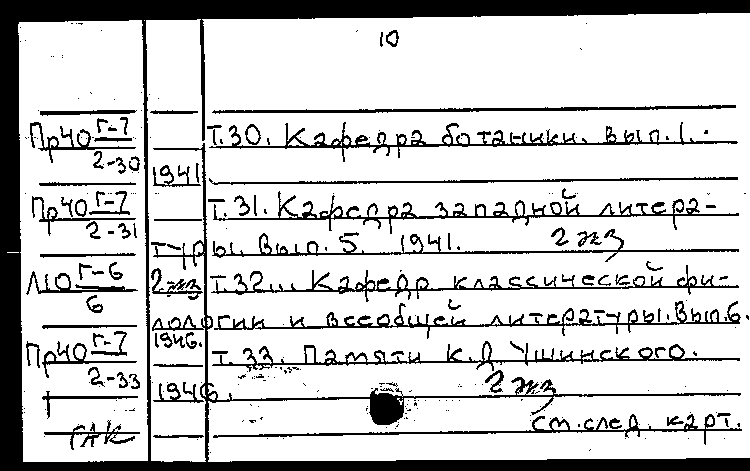 10
Пр40 Г-7/2-30 Т.30. Кафедра ботаники. Вып.1.
1941.
Пр40 Г-7/2-31 Т.31. Кафедра западной литера-
туры. Вып. 5. 1941. 2 экз
Л10 Г-6/6 2 экз Т.32... Кафедр классической фи-
лологии и всеобщей литературы. Вып.6.
1946.
Пр40 Г-7/2-33 Т.33. Памяти К.Д. Ушинского.
1946. 2 экз
ГАК см.след. карт.